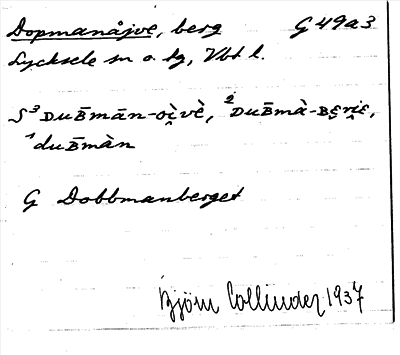 Dopmanåjve, berg G 49a3
Lycksele sn o. tg, Vbt l.
S ³DUB̄mān-oì̭vè, ²DUB̄mà-BE̮rìE,
¹duB̄màn
G Dobbmanberget
Björn Collinder 1937